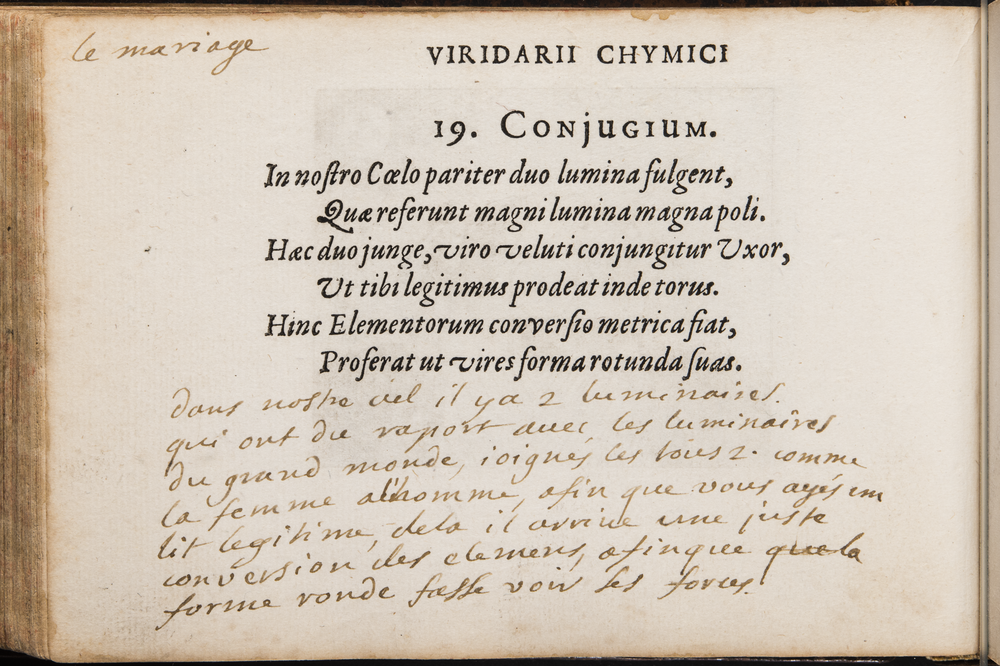 le mariage
VIRIDARII CHYMICI
19. CONJUGIUM.
In noſtro Cœlo pariter duo lumina fulgent,
Quæ referunt magni lumina magna poli.
Hæc duo junge, viro veluti conjungitur Uxor,
Ut tibi legitimus prodeat inde torus.
Hinc Elementorum converſio metrica fiat,
Proferat ut vires forma rotunda ſuas.
dans nostre ciel il y a 2 luminaires.
qui ont du raport avec les luminaires
du grand monde, ioignés les tous 2. comme
la femme a lhomme, afin que vous ayés un
lit legitime, dela il arrive une juste
conversion des elemens, afinque que la
forme ronde fasse voir ses forces.